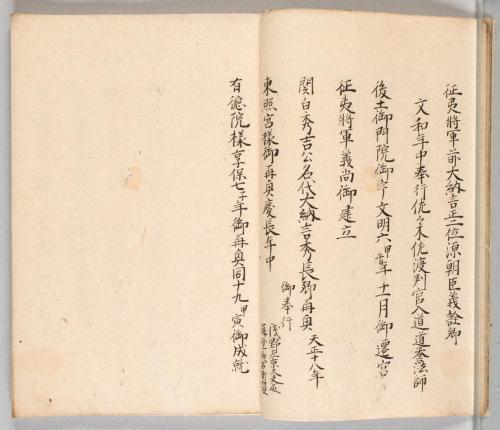 征夷將軍前大納言正二位源朝臣義詮卿
文和年中奉行佐々木佐渡判官入道道誉法師
後土御門院御宇文明六甲午年十二月御遷宮
征夷將軍義尚御建立
関白秀吉公名代大納言秀長卿再興 天正十八年
御奉行
浅野
東照宮様御再興慶長年中
有徳院様享保七壬年御再興同十九甲寅御成就